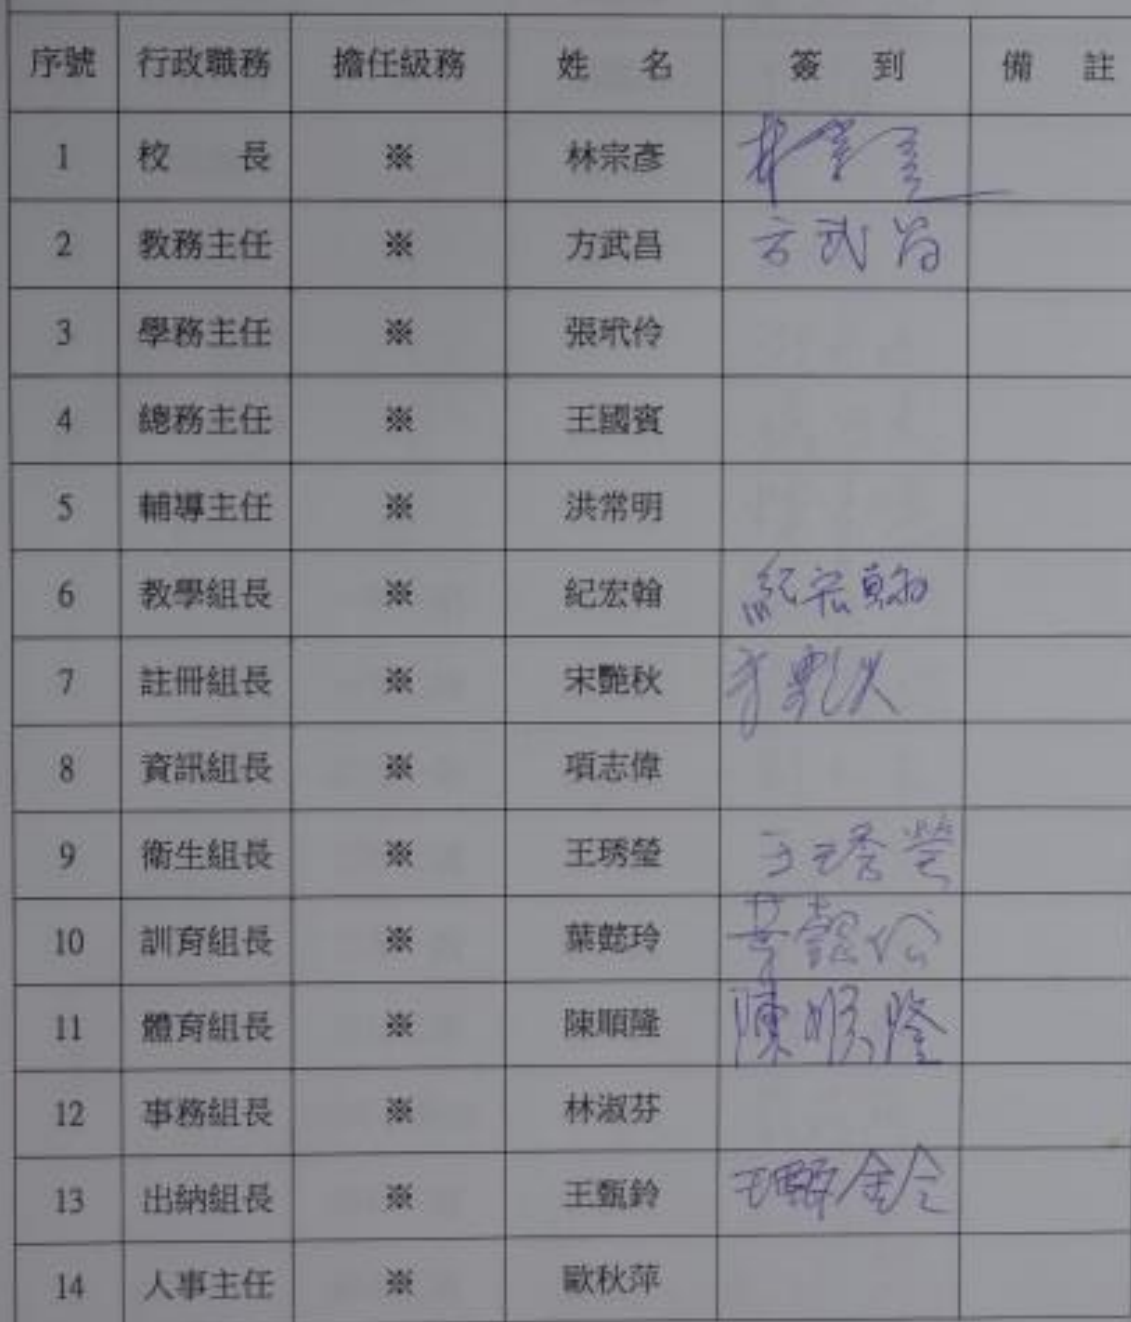 序號 行政職務 擔任級務 姓名 簽到 備註
1 校長 ※ 林宗彥 林宗彥
2 教務主任 ※ 方武昌 方武昌
3 學務主任 ※ 張玳伶
4 總務主任 ※ 王國賓
5 輔導主任 ※ 洪常明
6 教學組長 ※ 紀宏翰 紀宏翰
7 註冊組長 ※ 宋艷秋 宋艷秋
8 資訊組長 ※ 項志偉
9 衛生組長 ※ 王琇瑩 王琇瑩
10 訓育組長 ※ 葉懿玲 葉懿玲
11 體育組長 ※ 陳順隆 陳順隆
12 事務組長 ※ 林淑芬
13 出納組長 ※ 王甄鈴 王甄鈴
14 人事主任 ※ 歐秋萍